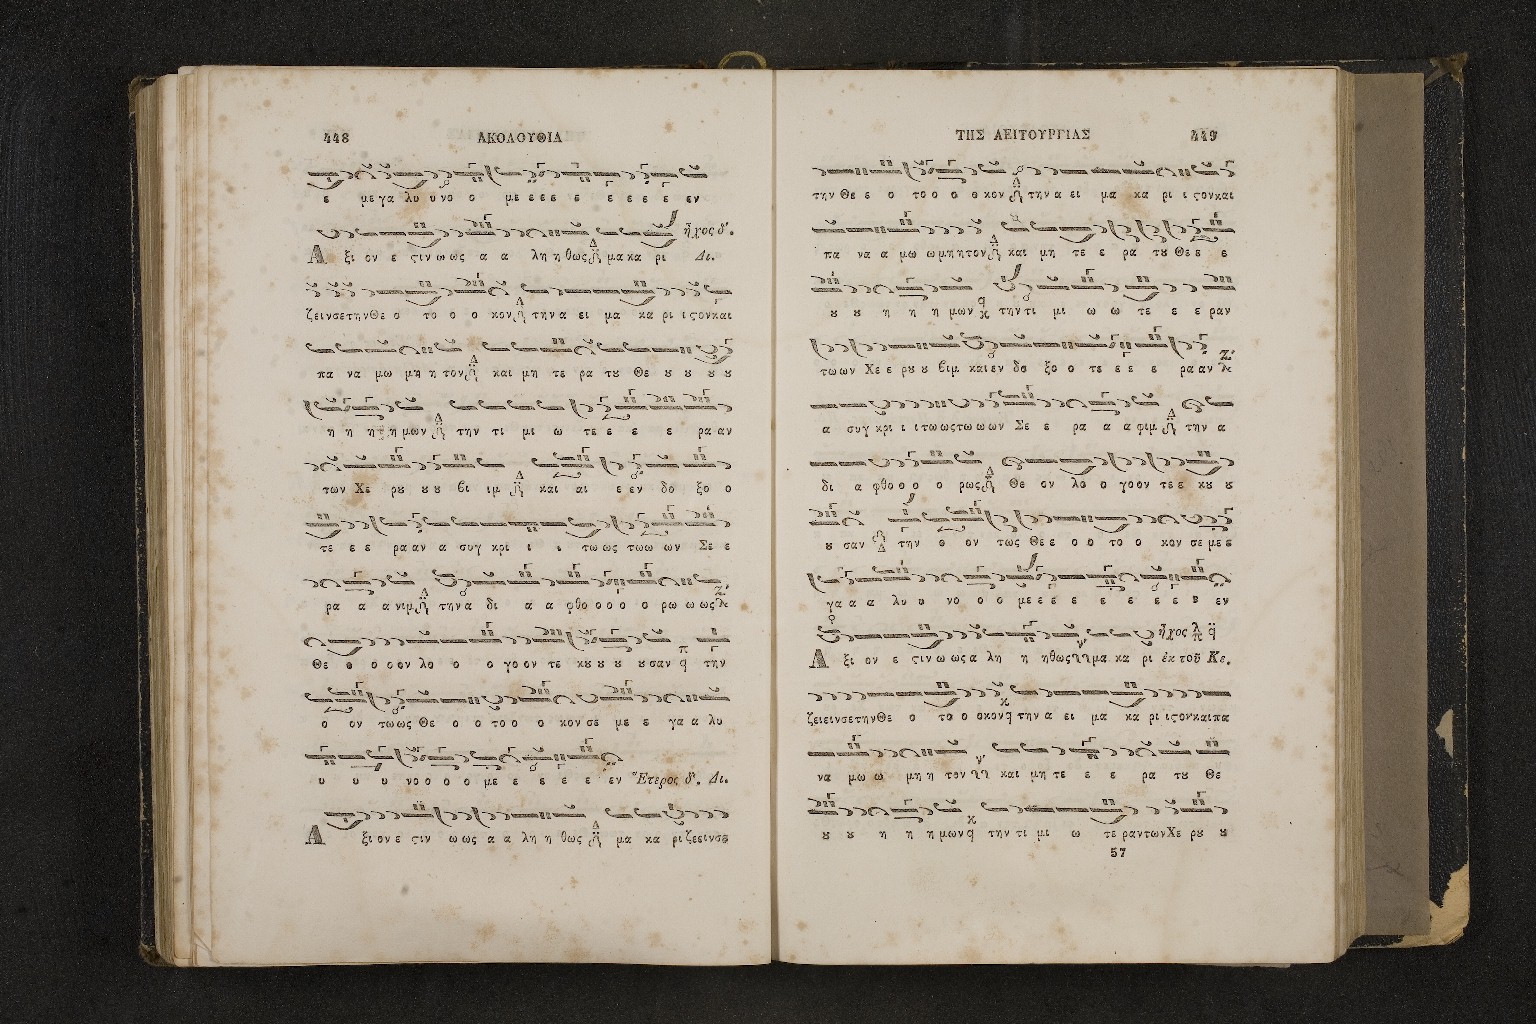 448 ΑΚΟΛΟΥΘΙΑ
ε με γα λυ υ νο ο με ε ε ε ε ε ε ε ε εν
ἦχος δ'.
Α ξι ον ε ϛιν ω ως α α λη η θως μα κα ρι Δι.
ζεινσετηνΘε ο το ο ο κον την α ει μα κα ρι ι ϛονκαι
πα να μω μη η τον και μη τε ρα τȣ Θε ȣ ȣ ȣ ȣ
η η η η μων την τι μι ω τε ε ε ε ρα αν
των Χε ρȣ ȣ ȣ βι ιμ και αι ε εν δο ξο ο
τε ε ε ρα αν α συγ κρι ι ι τω ως τω ω ων Σε ε
ρα α α νιμ την α δι α α φθο ο ο ο ο ρω ω ως
Θε ο ο ο ον λο ο ο γο ον τε κȣ ȣ ȣ ȣ σαν την
ο ον τω ως Θε ο ο το ο ο κον σε με ε γα α λυ
υ υ υ νο ο ο ο με ε ε ε ε ε εν Ἕτερος δ'. Δι.
Α ξι ον ε ϛιν ω ως α α λη η θως μα κα ρι ζεεινσε
ΤΗΣ ΛΕΙΤΟΥΡΓΙΑΣ 449
την Θε ε ο το ο ο ο κον την α ει μα κα ρι ι ϛονκαι
πα να α μω ω μη η τον και μη τε ε ρα τȣ Θε ε ε
ȣ ȣ η η η μων την τι μι ω ω τε ε ε ραν
τω ων Χε ε ρȣ ȣ βιμ και εν δο ξο ο τε ε ε ε ρα αν
α συγ κρι ι ι τω ως τω ω ων Σε ε ρα α α φιμ την α
δι α φθο ο ο ο ρως Θε ον λο ο γο ον τε ε κȣ ȣ
ȣ σαν την ο ον τως Θε ε ο ο το ο κον σε με ε
γα α α λυ υ νο ο ο με ε ε ε ε ε ε ε ε εν
ἦχος λ π q
Α ξι ον ε ϛιν ω ως α λη η ηθως μα κα ρι ἐκ τοῦ Κε.
ζειεινσετηνΘε ο το ο οκον την α ει μα κα ρι ιϛονκαιπα
να μω ω μη η τον και μη τε ε ε ρα τȣ Θε
ȣ ȣ η η η μων την τι μι ω τε ραντωνΧε ρȣ ȣ
57